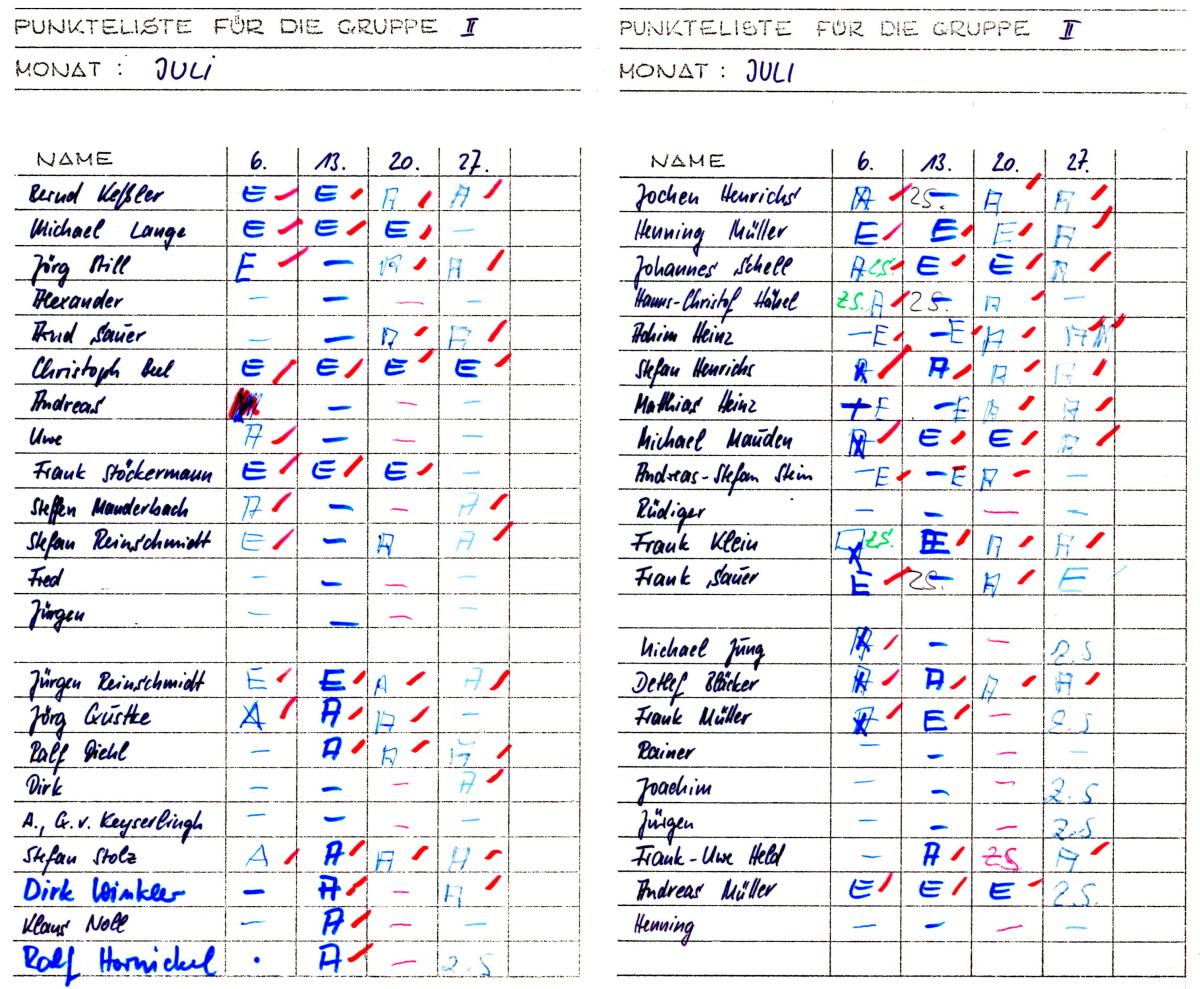 PUNKTELISTE FÜR DIE GRUPPE II
MONAT : JULI
NAME 6. 13. 20. 27.
Bernd Keßler E E A A
Michael Lange E E E –
Jörg Still E – A A
Alexander – – – –
Arnd Sauer – – A A
Christoph Beel E E E E
Andreas – – –
Uwe A – – –
Frank Stöckermann E E E –
Steffen Manderbach A – – A
Stefan Reinschmidt E – A A
Fred – – – –
Jürgen – – – –
Jürgen Reinschmidt E E A A
Jörg Gustke A A A –
Ralf Diehl – A A A
Dirk – – – A
A., G. v. Keyserlingh – – – –
Stefan Stolz A A A A
Dirk Winkler – A – A
Klaus Noll – A – –
Ralf Hornickel . A – 2.S
PUNKTELISTE FÜR DIE GRUPPE II
MONAT : JULI
NAME 6. 13. 20. 27.
Jochen Henrichs A ZS. – A A
Henning Müller E E E A
Johannes Schell A ZS. E E A
Hanns-Christof Häbel ZS. A ZS. – A –
Achim Heinz – E – E A A
Stefan Henrichs A A A A
Matthias Heinz + E – E A A
Michael Mauden A E E A
Andreas-Stefan Stein – E – E A –
Rüdiger – – – –
Frank Klein ZS. E A A
Frank Sauer E ZS. – A E
Michael Jung A – – 2.S
Detlef Bläcker A A A A
Frank Müller A E – 2.S
Rainer – – –
Joachim – – – 2.S
Jürgen – – – 2.S
Frank-Uwe Held – A ZS A
Andreas Müller E E E 2.S.
Henning – – – –